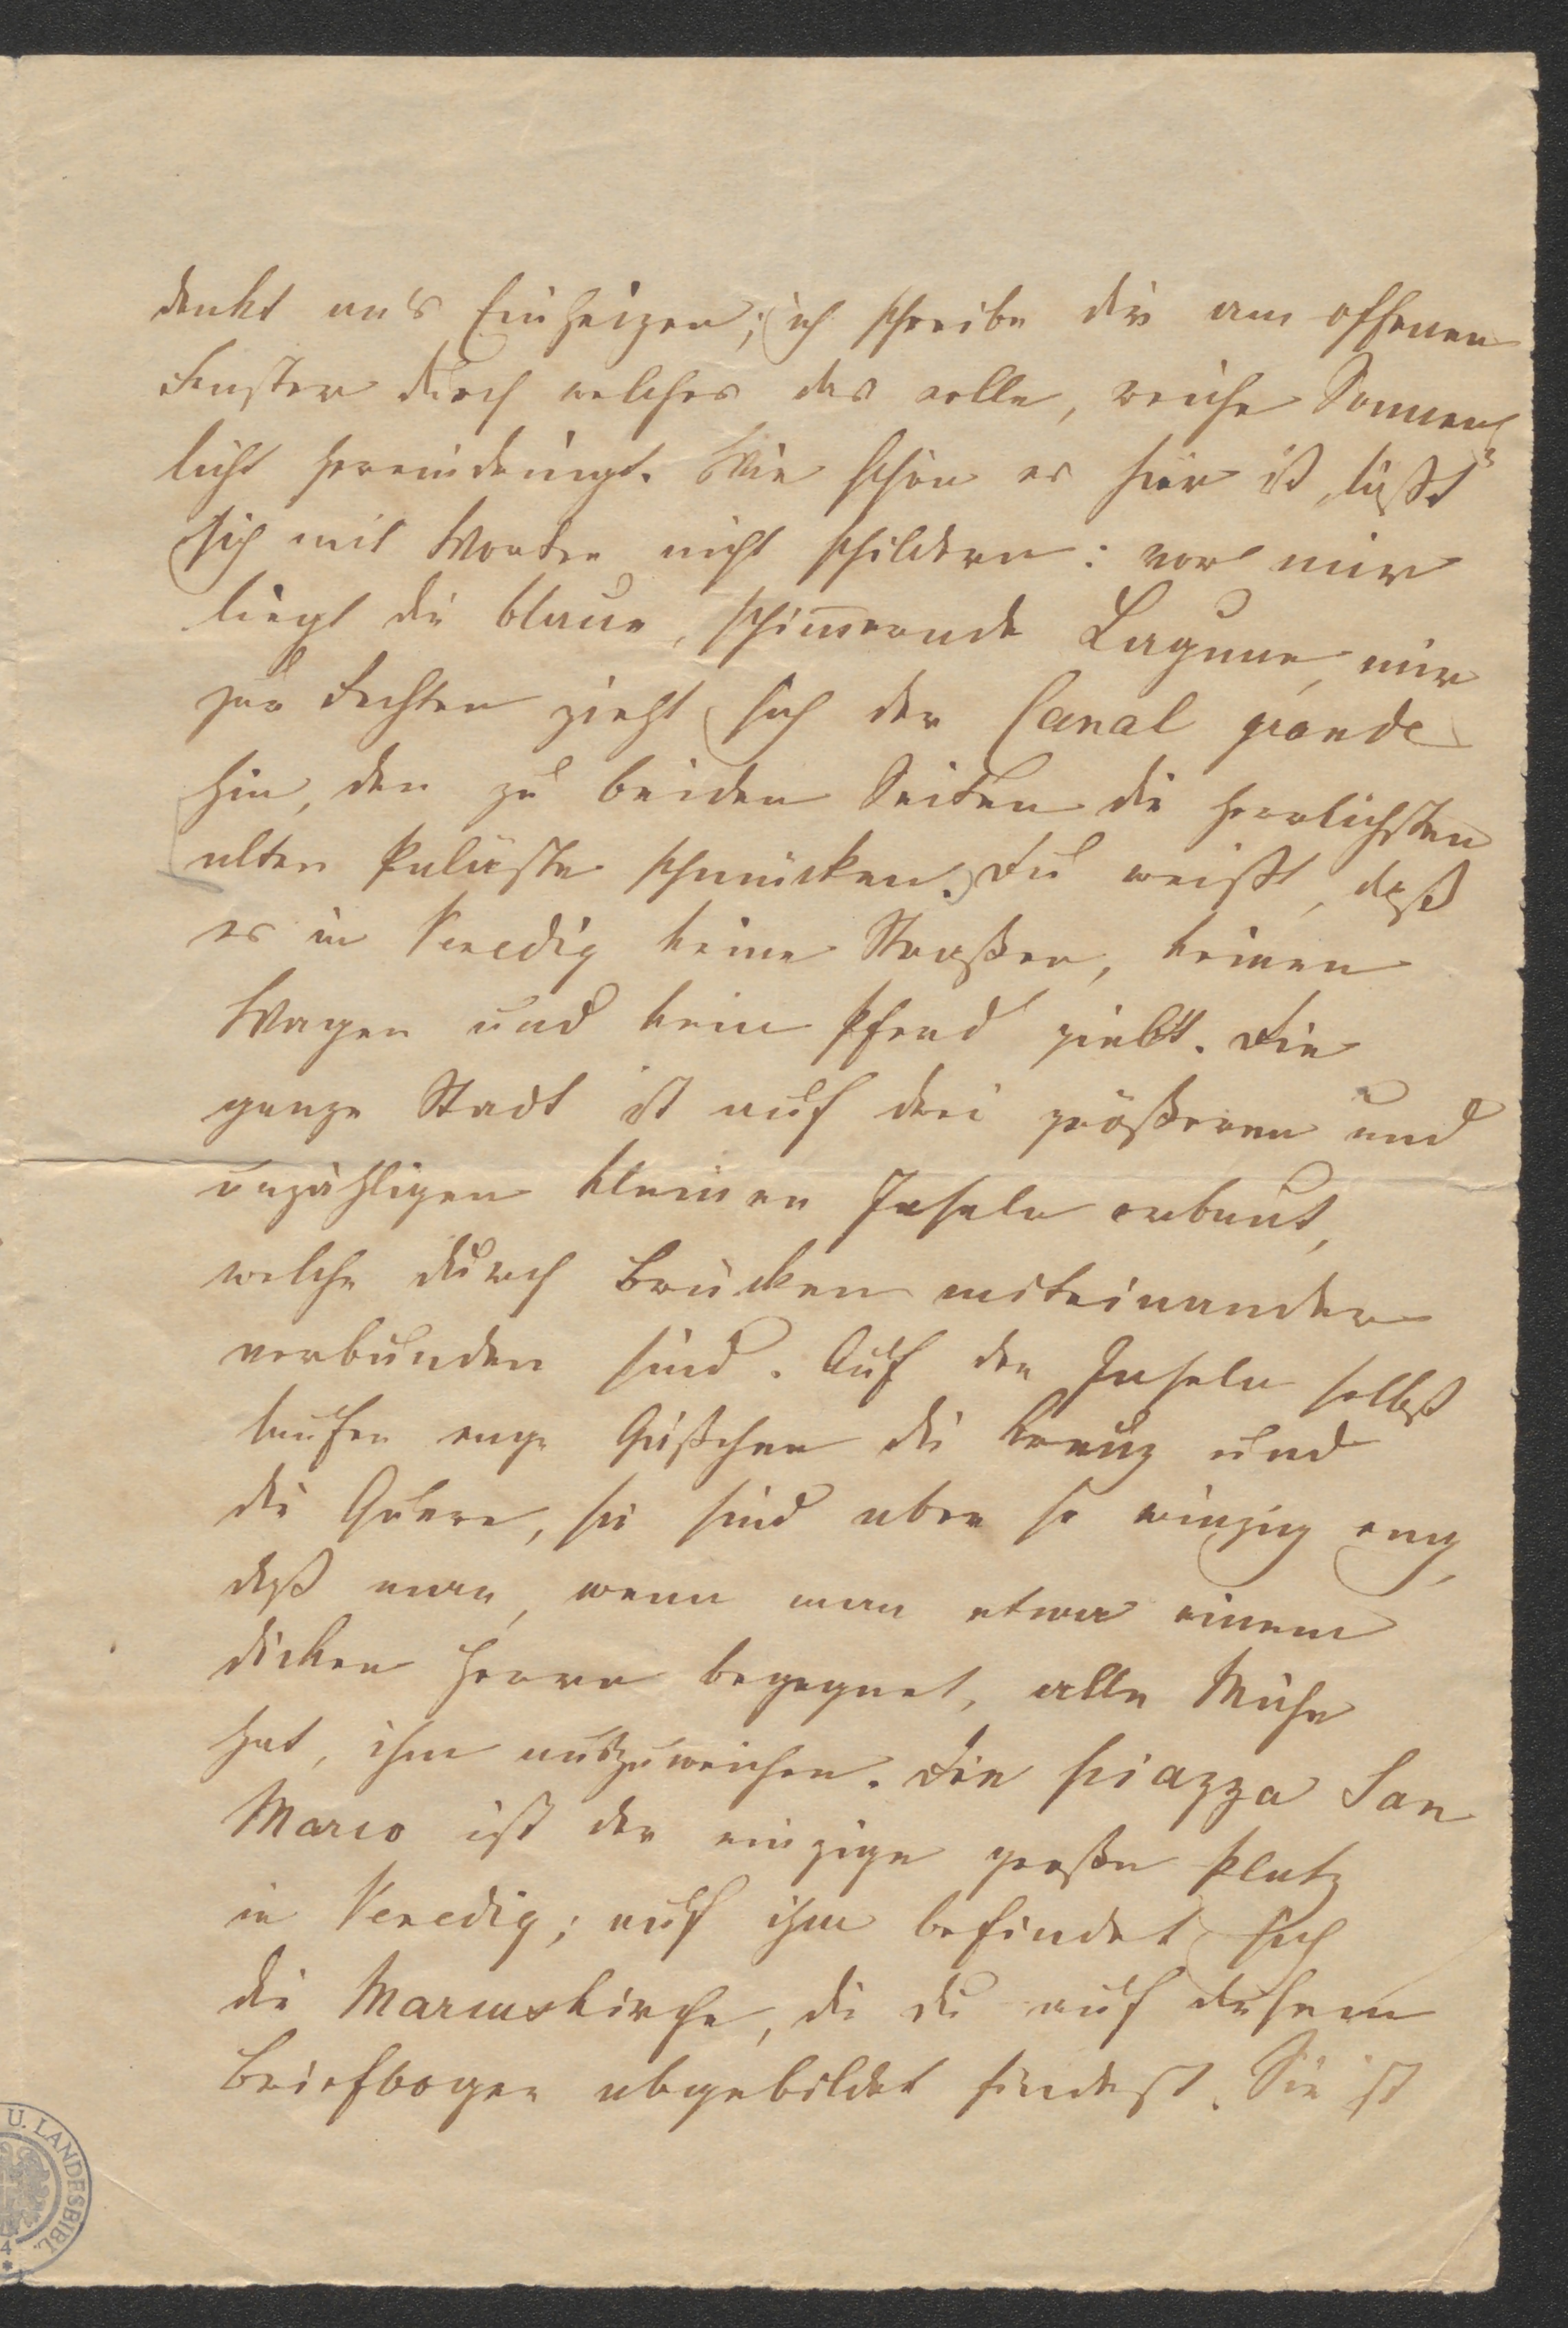 denkt an's Einheizen; ich schreibe dir am offenen
Fenster durch welches das volle, reiche Sonnen-
licht hereindringt. Wie schön es hier ist, läßt
sich mit Worten nicht schildern: vor mir
liegt die blaue, schim̅ernde Lagune, mir
zur Rechten zieht sich der Canal grande
hin, den zu beiden Seiten die herrlichsten
alten Paläste schmücken. Du weißt, daß
es in Venedig keine Straßen, keinen
Wagen und kein Pferd giebt. Die
ganze Stadt ist auf drei größeren und
unzähligen kleinen Inseln erbaut,
welche durch Brücken miteinander
verbunden sind. Auf den Inseln selbst
laufen enge Gäßchen die Kreuz und
die Quere, sie sind aber so winzig eng,
daß man, wenn man etwa einem
dicken Herrn begegnet, alle Mühe
hat, ihm auszuweichen. Die Piazza San
Marco ist der einzige große Platz
in Venedig; auf ihm befindet sich
die Marcuskirche, die du auf diesem
Briefbogen abgebildet findest. Sie ist
U. LANDESBIBL.
4